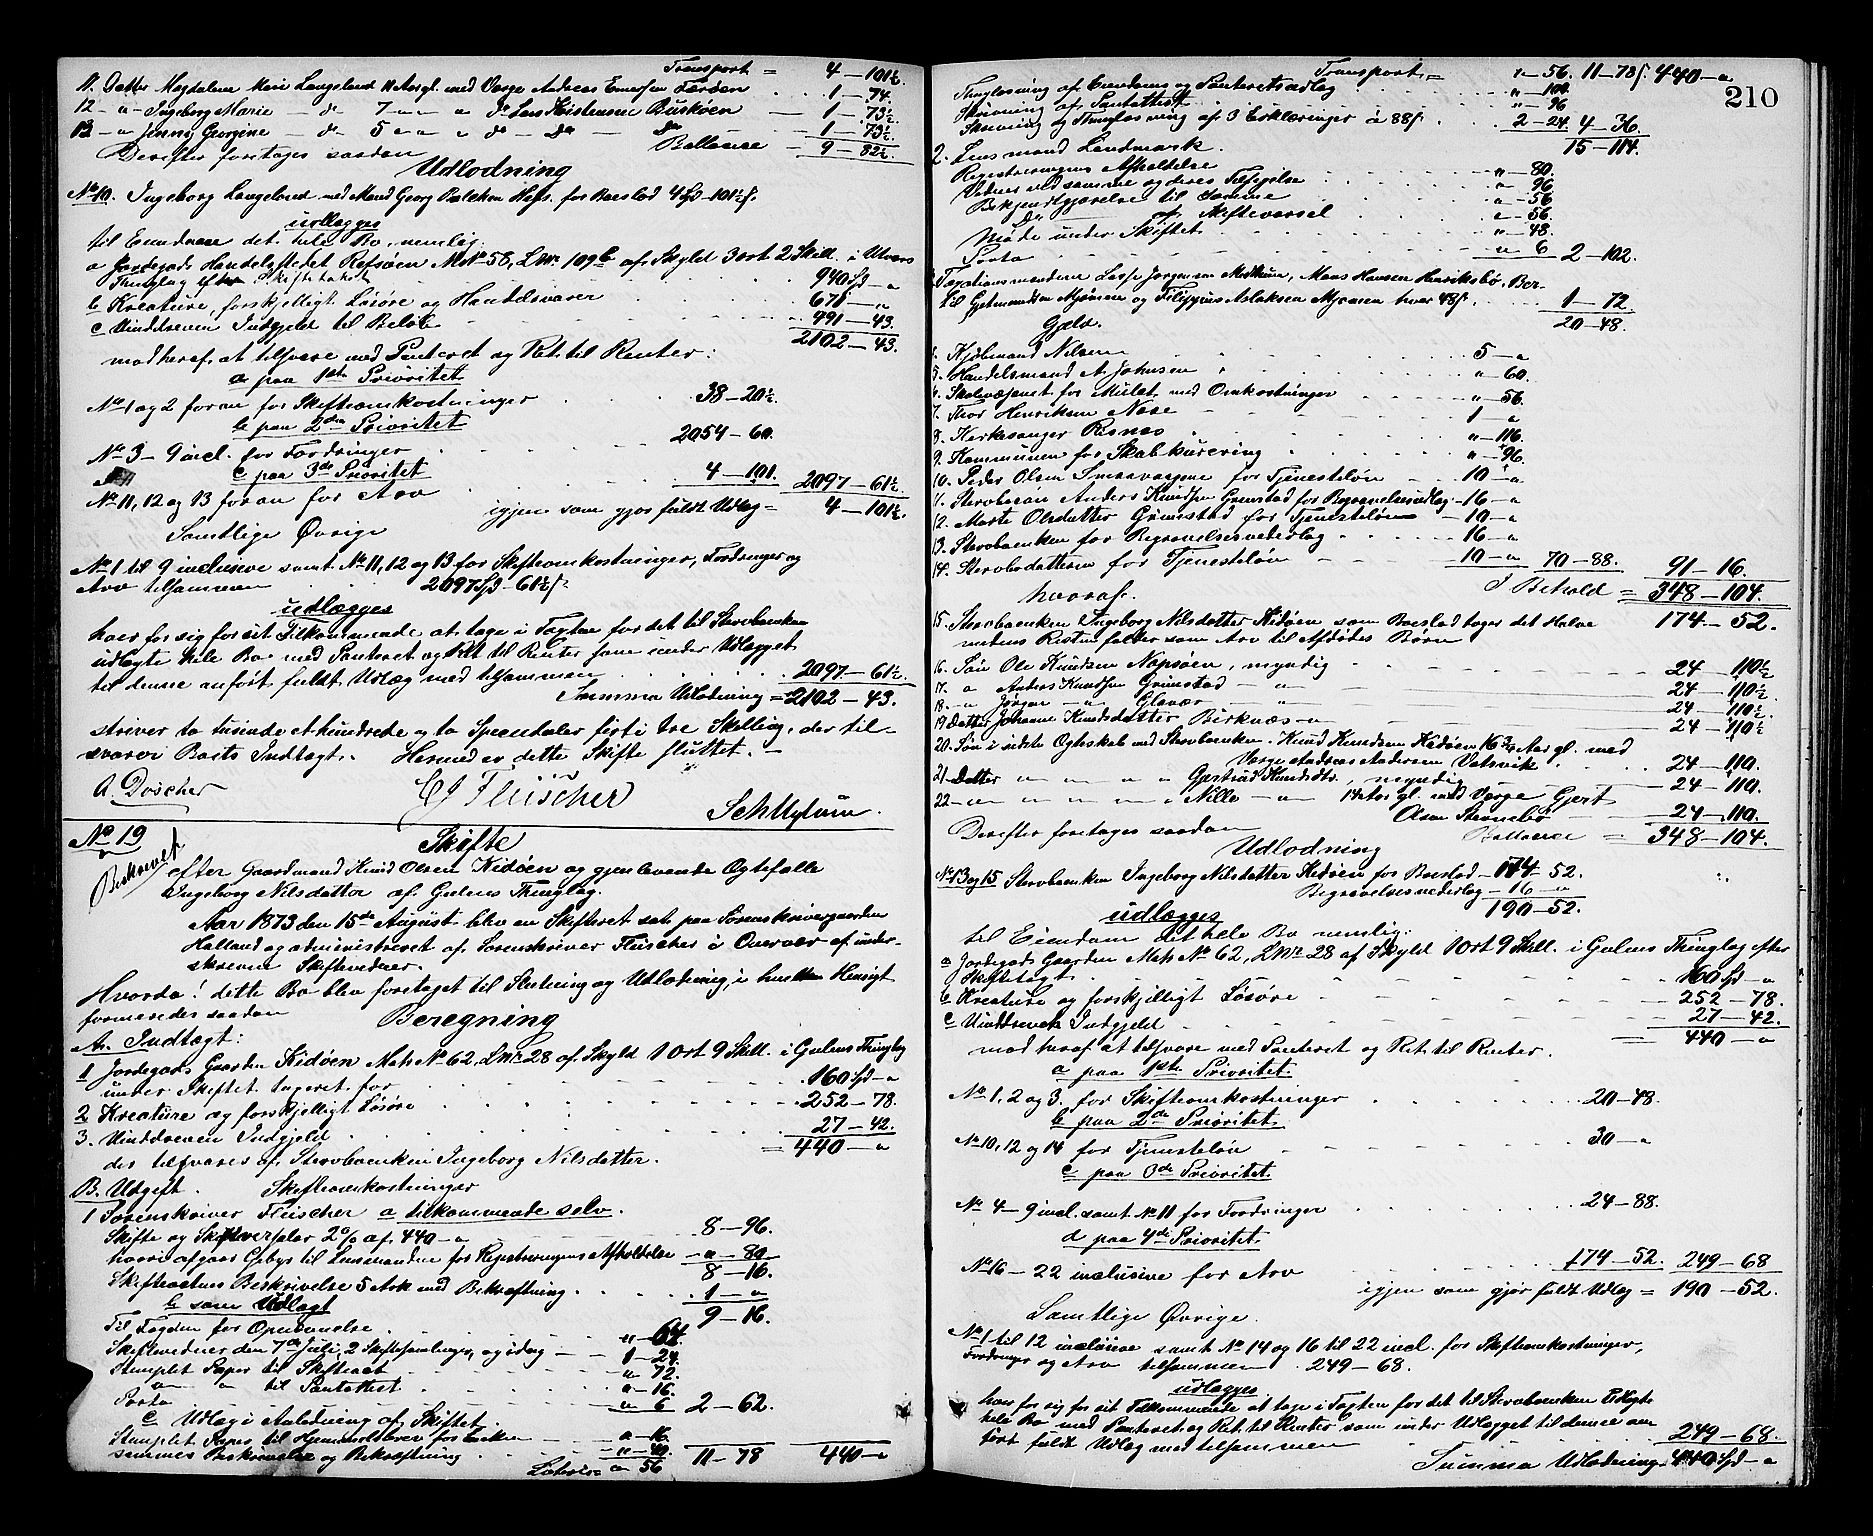 Transport = 4 — 101½
11. Datter Magdalene Marie Langeland 10 Aar gl. med Værge Andreas Ensersen Lerøen . . 1 — 74.
12 — „ Ingeborg Marie — do 7 — „ — „ Do Lars Kristensen Buskøen — 1 — 73½
13 — „ Jenny Georgine — do 5 „ — „ „ do — Do Do — 1 — 73½
Derefter foretages saadan Ballance — 9 — 82½
Udlodning
No 10. Ingeborg Langeland med Mand Georg Balchen Hefs. for Boeslod 4 Spd — 101½ s.
udlægges
til Eiendom det hele Bo, nemlig:
a Jordegods Handelsstedet Refsøen M. No 58, L. Nr. 109b af Skyld 3 ort 2 Skill. i Utvær
Thinglag efter Skiftetakst 940 Spd — „
b Kreature, forskjelligt Løsøre og Handelsvarer 671 — „
c Uinddreven Indgjeld til Beløb 491 — 43.
2102 — 43.
mod heraf at tilsvare med Panteret og Ret til Renter:
a paa 1ste Prioritet
No 1 og 2 foran for Skifteomkostninger 38 — 20½
b paa 2den Prioritet
No 3 — 9 incl. for Fordringer 2054 — 60.
c paa 3de Prioritet
No 11, 12 og 13 foran for Arv 4 — 101. 2097 — 61½
igjen som gjør fuldt Udlæg = 4 — 101½
Samtlige Øvrige
No 1 til 9 inclusive samt No 11, 12 og 13 for Skifteomkostninger, Fordringer og
Arv tilsammen 2097 Spd — 61½ s.
udlægges
hver for sig for sit Tilkommende at tage i Fagtere for det til Stervboenken
udlagte hele Bo med Panteret og Ret til Renter som under Udlægget
til denne anført, fuldt Udlæg med tilsammen 2097 — 61½
Summa Udlodning = 2102 — 43.
skriver to tusinde et hundrede og to Speciedaler firti tre Skilling, der til-
svarer Boets Indtægt. Hermed er dette Skifte sluttet. —
A. Doscher C J Fleischer S. H. Myhum.
No 19 Skifte
Beskrevet
efter Gaardmand Knud Olsen Kidøen og gjenlevende Egtefælle
Ingeborg Nilsdatter af Gulens Thinglag.
Aar 1873 den 15de August blev en Skifteret sat paa Sorenskrivergaarden
Halland og administreret af Sorenskriver Fleischer i Overvær af under-
skrevne Skiftevidner.
Hvorda! dette Bo blev foretaget til Slutning og Udlodning, i hvilken Hensigt
formeredes saadan Beregning
A. Indtægt:
1 Jordegods Gaarden Kidøen Mat. No 62, L. Nr. 28 af Skyld 1 Ort 9 Skill. i Gulens Thinglag
under Skiftet taxeret for 160 Spd — „
2 Kreature og forskjelligt Løsøre 252 — 78.
3. Uinddreven Indgjeld 27 — 42.
der tilsvares af Stervboenken Ingeborg Nilsdatter. = 440 — „
B. Udgift. Skifteomkostninger
1 Sorenskriver Fleischer a tilkommende selv.
Skifte og Skriverpløs 2% af 440 — „ 8 — 96.
hvori afgaar Gebyr til Lensmanden for Registreringens Afholdelse „ — 80
8 — 16.
Skifteactens Beskrivelse 5 Ark med Bekræftning . 1 — „
b som Udlagt 9 — 16.
Til Fogden for Opnævnelse „ — 64.
Skiftevidner den 7de Juli, 2 Skiftesamlinger, og idag — 1 — 24.
Stemplet Papir til Skifteact „ — 72.
„ „ til Pantattest „ — 16.
Porto „ — 6 2 — 62.
c Udlæg i Anledning af Skiftet.
Stemplet Papir til Hjemmelsbrev for Enken „ — 16.
sammes Beskrivelse og Bekræftning „ — 40.
Lateris „ 56 11 — 78 440 — „
210
Transport = „ — 56. 11 — 78 s. 440 — „
Thinglæsning af Eiendoms og Panteretsudlæg „ — 104.
Skrivning af Pantattest „ — 96
Skrivning og Thinglæsning af 3 Erklæringer á 88 s. 2 — 24. 4 — 36.
2. Lensmand Lindmark. 15 — 114.
Registreringens Afholdelse „ — 80.
Vidner ved samme og deres Tilsigelse „ — 96
Bekjendtgjørelse til Samme „ — 56
Do af Skiftevarsel „ — 56.
Møde under Skiftet „ — 48.
Porto „ 6 2 — 102.
3. Taxationsmændene Lasse Jørgensen Midttun, Mons Hansen Henriksbø, Ber-
til Gjetmundsen Mjømen og Filippus Aslaksen Mjømen hver 48 s. 1 — 72.
Gjeld. 20 — 48.
4. Kjøbmand Nilsen 5 — „
5. Handelsmand A. Johnsen „ — 60.
6. Skolevæsenet for Mulct med Omkostninger „ — 56.
7. Thor Henriksen Nese 1 — „
8. Kirkesanger Risnes „ — 116.
9. Kommunen for Skabkurering „ — 96.
10. Peder Olsen Smaavarpene for Tjenesteløn 10 — „
11. Stervboesøn Anders Knudsen Grimstad for Begravelsesudlæg — 16 — „
12. Marte Olsdatter Grimstad for Tjenesteløn — 10 — „
13. Stervboenken for Begravelsesvederlag 16 — „
14. Stervbodatteren for Tjenesteløn 10 — „ 70 — 88. 91 — 16.
I Behold = 348 — 104.
hvoraf.
15. Stervboenken Ingeborg Nilsdatter Kidøen som Boeslod tager det Halve 174 — 52.
medens Resten falder som Arv til Afdødes Børn
16. Søn Ole Knudsen Napsøen, myndig 24 — 110½
17. „ Anders Knudsen Grimstad — „ 24 — 110½
18. — „ Jørgen — „ — Glavær „ 24 — 110½
19. Datter Johanne Knudsdatter Birknæs — „ 24 — 110½
20. Søn i sidste Egteskab med Stervboenken. Knud Knudsen Kidøen 16 ¾ Aar gl. med
Værge Andreas Andersen Vatsvik 24 — 110.
21. Datter „ „ „ „ Gjertrud Knudsdtr., myndig 24 — 110.
22. — „ „ „ „ „ Nille — „ 14 Aar gl. med Værge Gjert
Olsen Stevnebø 24 — 110.
Derefter foretages saadan Ballance = 348 — 104.
Udlodning
No 13 og 15 Stervboenken Ingeborg Nilsdatter Kidøen for Boeslod — 174 — 52.
Begravelsesvederlag — 16 — „
udlægges 190 — 52.
til Eiendom det hele Bo nemlig:
a Jordegods Gaarden Mat. No 62, L. Nr. 28 af Skyld 1 Ort 9 Skill. i Gulens Thinglag efter
Skiftetaxt 160 Spd — „
b Kreature og forskjelligt Løsøre 252 — 78.
c Uinddreven Indgjeld 27 — 42.
= 440 — „
mod heraf at tilsvare med Panteret og Ret til Renter.
a paa 1ste Prioritet.
No 1, 2 og 3. for Skifteomkostninger 20 — 48.
b paa 2de Prioritet.
No 10, 12 og 14 for Tjenesteløn 30 — „
c paa 3de Prioritet.
No 4 — 9 incl. samt No 11 for Fordringer 24 — 88.
d paa 4de Prioritet.
No 16 — 22 inclusive for Arv 174 — 52. 249 — 68
igjen som gjør fuldt Udlæg = 190 — 52.
Samtlige Øvrige.
No 1 til 12 inclusive samt No 14 og 16 til 22 incl. for Skifteomkostninger,
Fordringer og Arv tilsammen . 249 — 68.
udlægges
hver for sig for sit Tilkommende at tage i Fagtere for det til Stervboenken Udlagte
hele Bo med Panteret og Ret til Renter som under Udlægget til denne an-
ført fuldt Udlæg med tilsammen 249 — 68.
Summa Udlodning 440 Spd — „